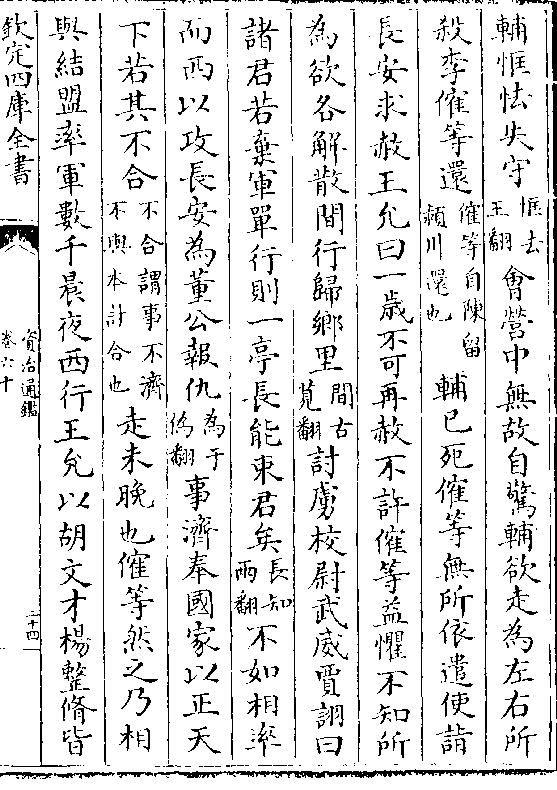 輔恇怯失守恇去王翻會營中無故自驚輔欲走為左右所
殺李傕等還傕等自陳留潁川還也輔已死傕等無所依遣使詣
長安求赦王允曰一歳不可再赦不許傕等益懼不知所
為欲各解散間行歸鄉里間古莧翻討虜校尉武威賈詡曰
諸君若棄軍單行則一亭長能束君矣長知兩翻不如相率
而西以攻長安為董公報仇為于偽翻事濟奉國家以正天
下若其不合不合謂事不濟不與本計合也走未晚也傕等然之乃相
與結盟率軍數千晨夜西行王允以胡文才楊整脩皆
欽定四庫全書
資治通鑑
卷六十
二十四